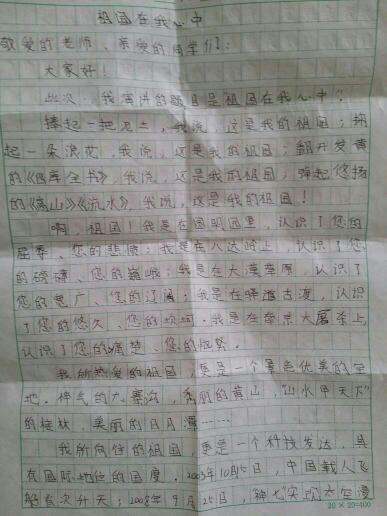 祖国在我心中
敬爱的老师、亲爱的同学们：
大家好！
此次，我演讲的题目是"祖国在我心中"。
捧起一把泥土，我说，这是我的祖国；掬
起一朵浪花，我说，这是我的祖国；翻开发黄
的《四库全书》，我说，这是我的祖国；弹起悠扬
的《高山》《流水》，我说，这是我的祖国！
啊，祖国！我是在圆明园里，认识了您的
屈辱、您的悲愤；我是在八达岭上，认识了您
的磅礴、您的巍峨；我是在大漠草原，认识了
您的宽广、您的辽阔；我是在驿道古渡，认识
了您的悠久、您的坎坷。我是在南京大屠杀上，
认识了您的痛楚、您的愤怒。
我所热爱的祖国，更是一个景色优美的宝
地。神气的九寨沟，秀丽的黄山，"山水甲天下"
的桂林，美丽的日月潭……
我所向往的祖国，更是一个科技发达，具
有国际地位的国度。2003年10月15日，中国载人飞
船首次升天；2008年9月25日，神七实现太空漫
20×20=400